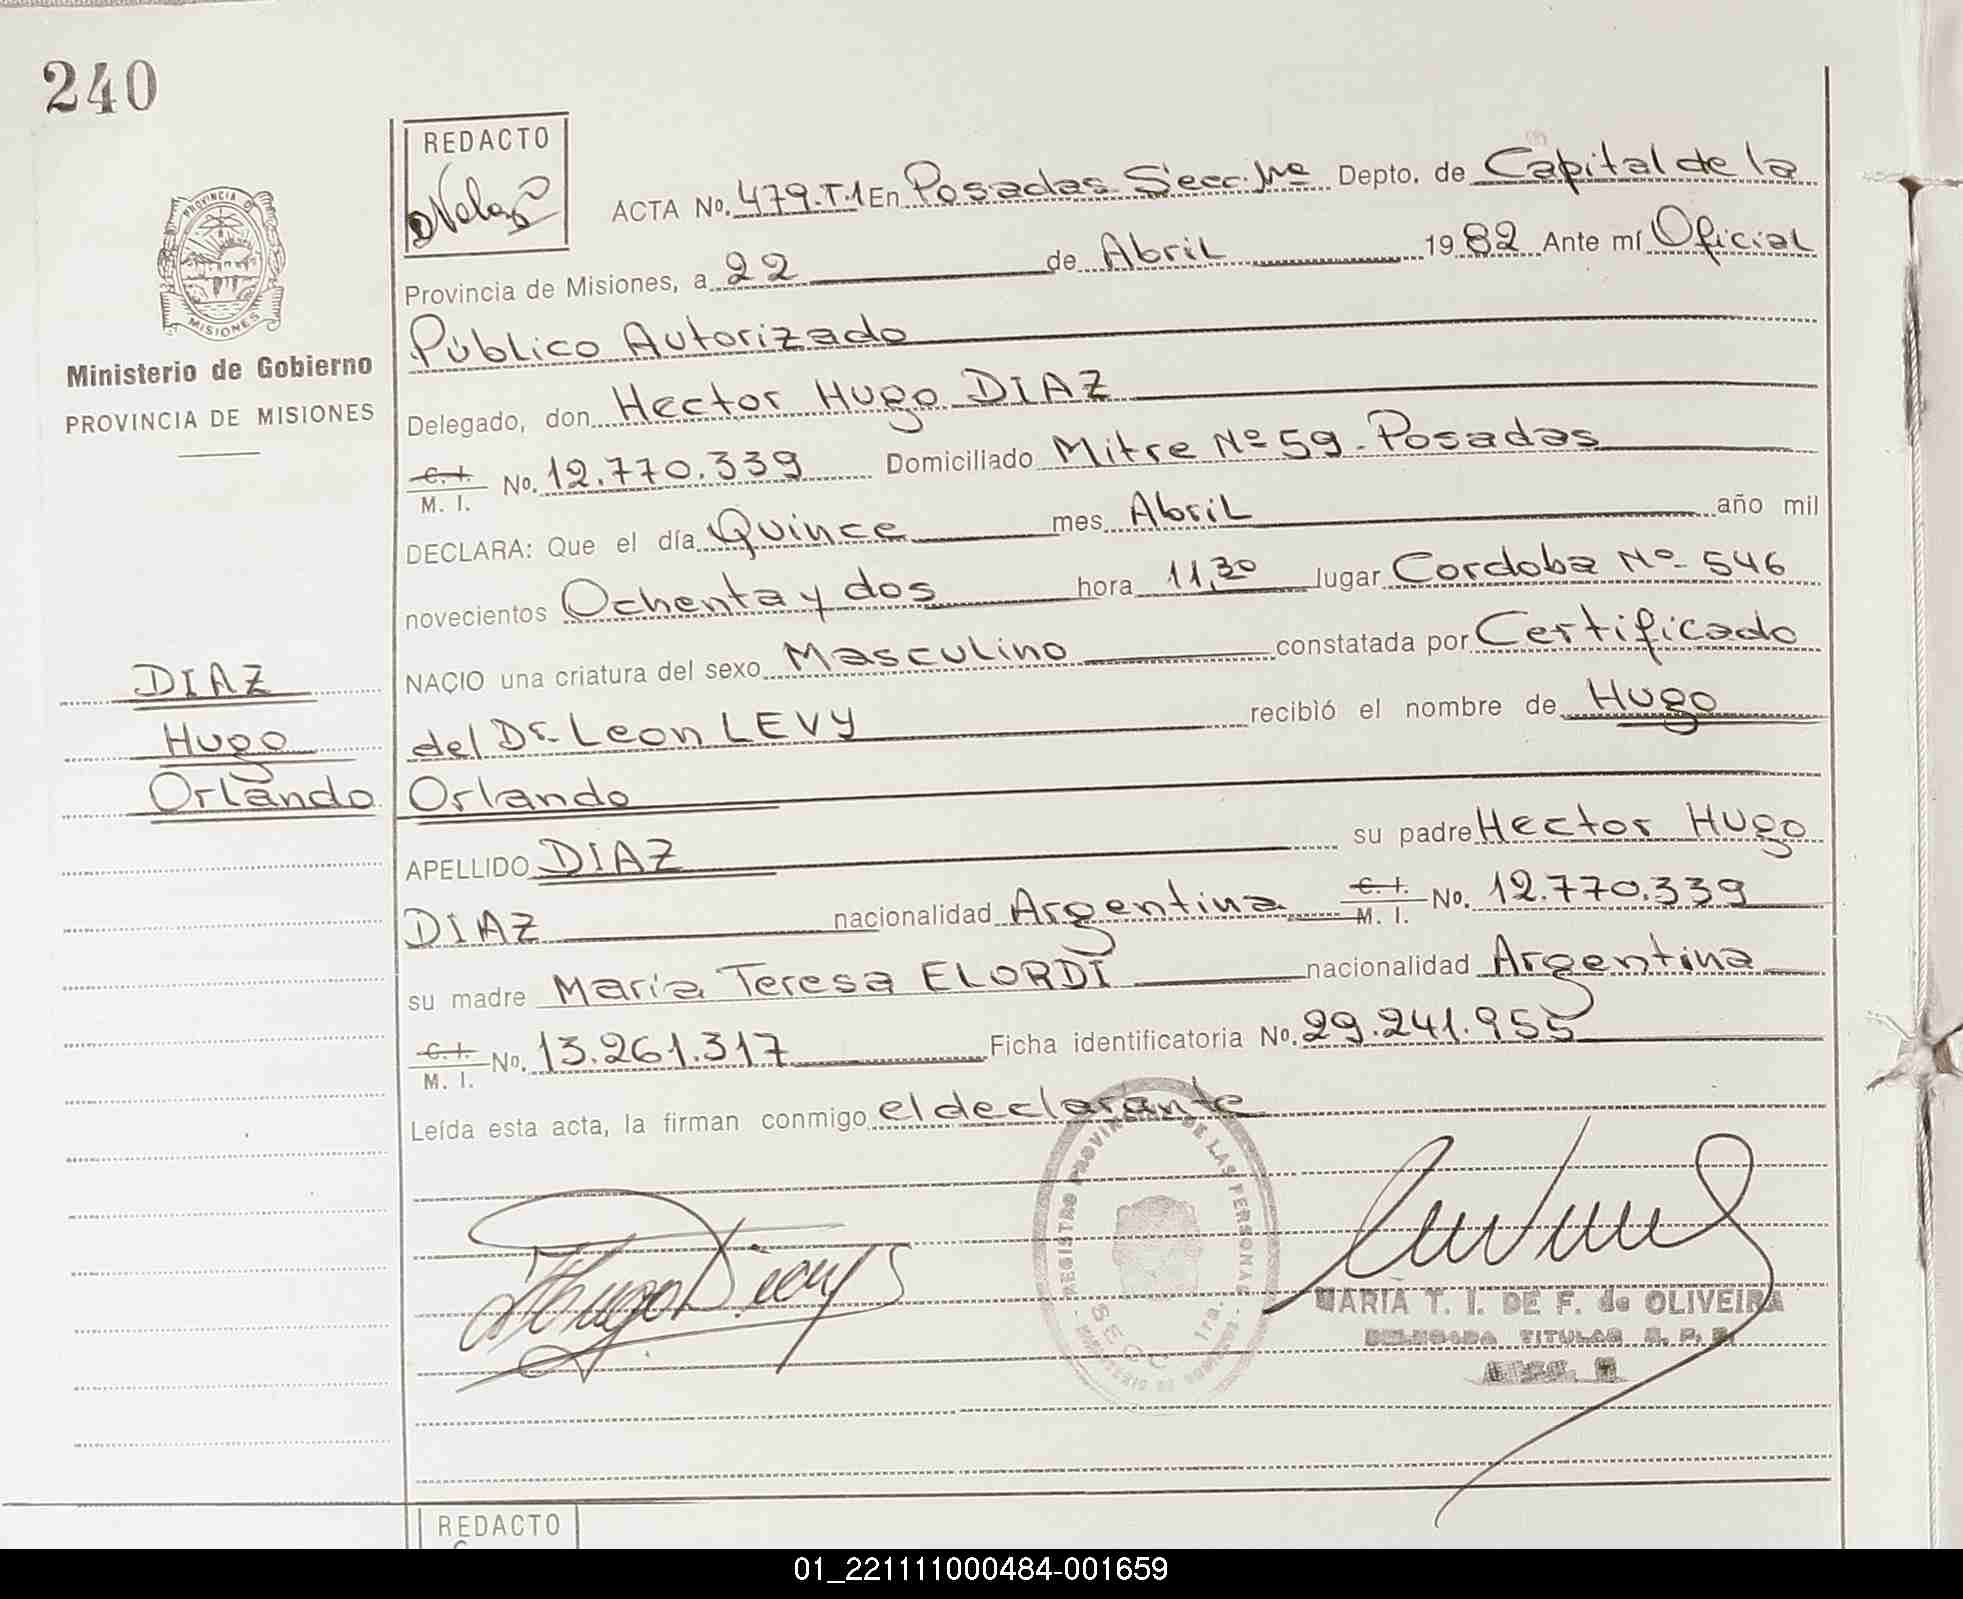 240
REDACTO
ACTA No. 479.T.1 En Posadas Secc. 1ra Depto. de Capital de la
Provincia de Misiones, a 22 de Abril 1982 Ante mí Oficial
Público Autorizado
Delegado, don Hector Hugo DIAZ
C. I.
M. I. No. 12.770.339 Domiciliado Mitre Nº 59 - Posadas
DECLARA: Que el día Quince mes Abril año mil
novecientos Ochenta y dos hora 11,30 lugar Cordoba Nº 546
NACIO una criatura del sexo Masculino constatada por Certificado
del Dr. Leon LEVY recibió el nombre de Hugo
Orlando
APELLIDO DIAZ su padre Hector Hugo
DIAZ nacionalidad Argentina C. I. M. I. No. 12.770.339
su madre Maria Teresa ELORDI nacionalidad Argentina
C. I.
M. I. No. 13.261.317 Ficha identificatoria No. 29.241.955
Leída esta acta, la firman conmigo el declarante
PROVINCIA D
MISIONES
Ministerio de Gobierno
PROVINCIA DE MISIONES
DIAZ
Hugo
Orlando
REGISTRO PROVINCIAL DE LAS PERSONAS
SECC 1ra.
MARIA T. I. DE F. de OLIVEIRA
DELEGADA TITULAR R. P. P.
REDACTO
01_221111000484-001659